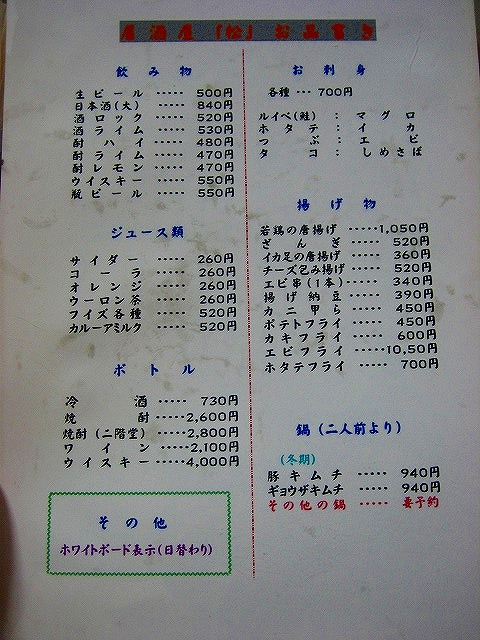 居酒屋「松」お品書き
飲み物
生ビール ‥‥‥ 500円
日本酒(大) ‥‥‥ 840円
酒ロック ‥‥‥ 520円
酒ライム ‥‥‥ 530円
酎ハイ ‥‥‥ 480円
酎ライム ‥‥‥ 470円
酎レモン ‥‥‥ 470円
ウイスキー ‥‥‥ 550円
瓶ビール ‥‥‥ 550円
ジュース類
サイダー ‥‥‥ 260円
コーラ ‥‥‥ 260円
オレンジ ‥‥‥ 260円
ウーロン茶 ‥‥‥ 260円
フイズ各種 ‥‥‥ 520円
カルーアミルク ‥‥‥ 520円
ボトル
冷酒 ‥‥‥ 730円
焼酎 ‥‥‥2,600円
焼酎(二階堂) ‥‥‥2,800円
ワイン ‥‥‥2,100円
ウイスキー ‥‥‥4,000円
その他
ホワイトボード表示(日替わり)
お刺身
各種 ‥‥ 700円
ルイベ(鮭) : マグロ
ホタテ : イカ
つぶ : エビ
タコ : しめさば
揚げ物
若鶏の唐揚げ ‥‥‥1,050円
ざんぎ ‥‥‥ 520円
イカ足の唐揚げ ‥‥‥ 360円
チーズ包み揚げ ‥‥‥ 520円
エビ串(1本) ‥‥‥ 340円
揚げ納豆 ‥‥‥ 390円
カニ甲ら ‥‥‥ 450円
ポテトフライ ‥‥‥ 450円
カキフライ ‥‥‥ 600円
エビフライ ‥‥‥10,50円
ホタテフライ ‥‥‥ 700円
鍋(二人前より)
(冬期)
豚キムチ ‥‥‥ 940円
ギョウザキムチ ‥‥‥ 940円
その他の鍋 ‥‥‥ 要予約